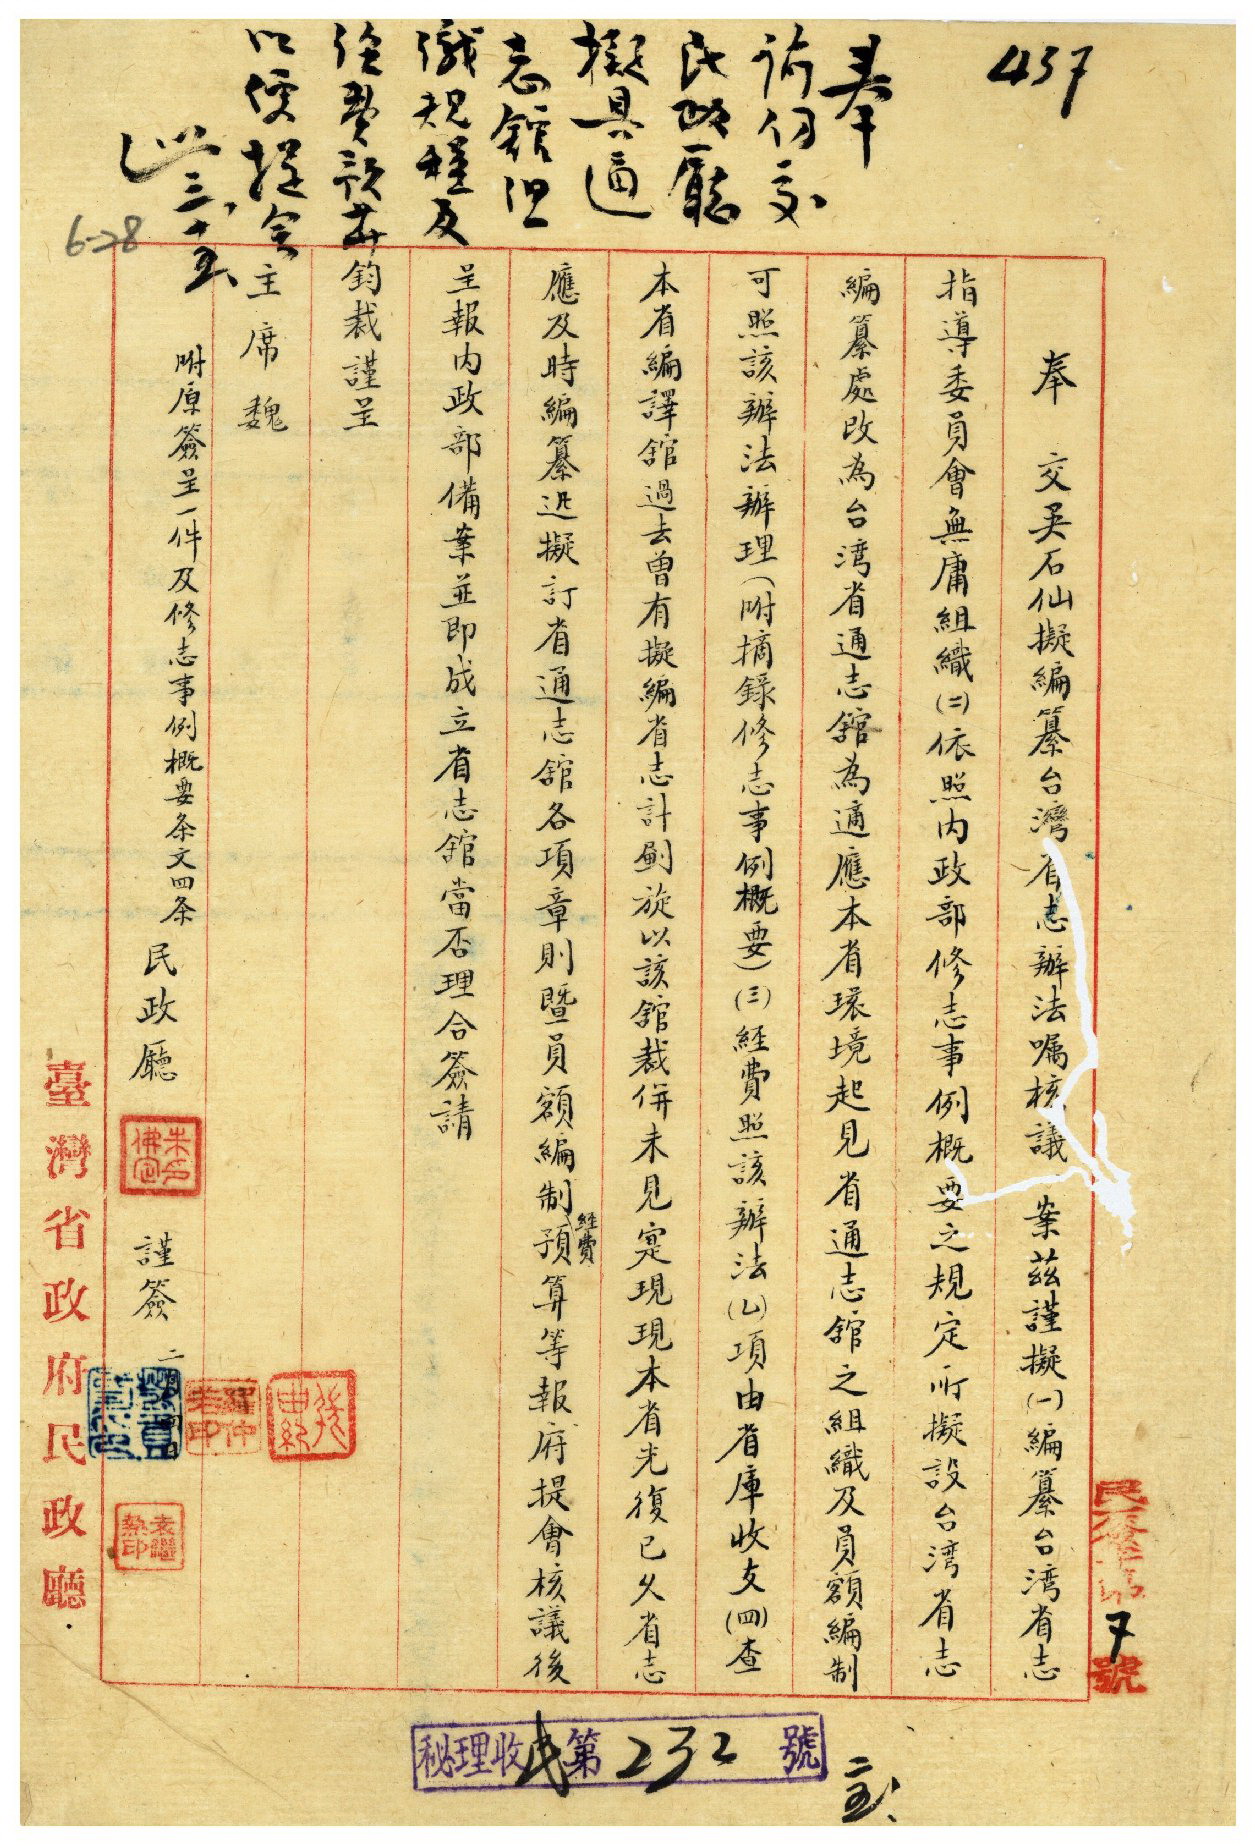 437
奉
諭仍交
民政廳
擬具通
志館組
織規程及
經費預算
以便提會
三、十五、
6-28
奉 交吳石仙擬編纂台灣省志辦法囑核議一案茲謹擬(一)編纂台湾省志
指導委員會無庸組織(二)依照內政部修志事例概要之規定所擬設台湾省志
編纂處改為台湾省通志舘為適應本省環境起見省通志舘之組織及員額編制
可照該辦法辦理(附摘錄修志事例概要)(三)経費照該辦法(乚)項由省庫收支(四)查
本省編譯舘過去曾有擬編省志計劃旋以該舘裁併未見寔現現本省光復已久省志
應及時編纂迅擬訂省通志舘各項章則暨員額編制経費預算等報府提會核議後
呈報內政部備案並即成立省志舘當否理合簽請
鈞裁謹呈
主席魏
附原簽呈一件及修志事例概要条文四条
民政廳 朱佛定印 謹簽 二月 四日
臺灣省政府民政廳
7 號
秘理收民第232號